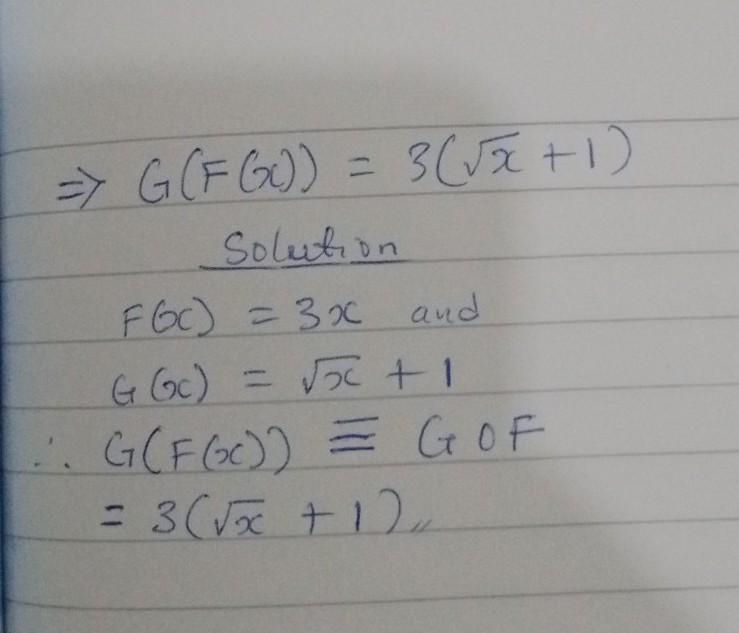 ⇒ G(F(x)) = 3(√x + 1)
Solution
F(x) = 3x and
G(x) = √x + 1
∴ G(F(x)) ≡ GOF
= 3(√x + 1),,